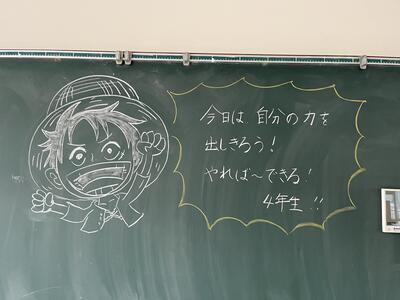 今日は 自分の力を
出しきろう!
やれば〜できる!
4年生!!